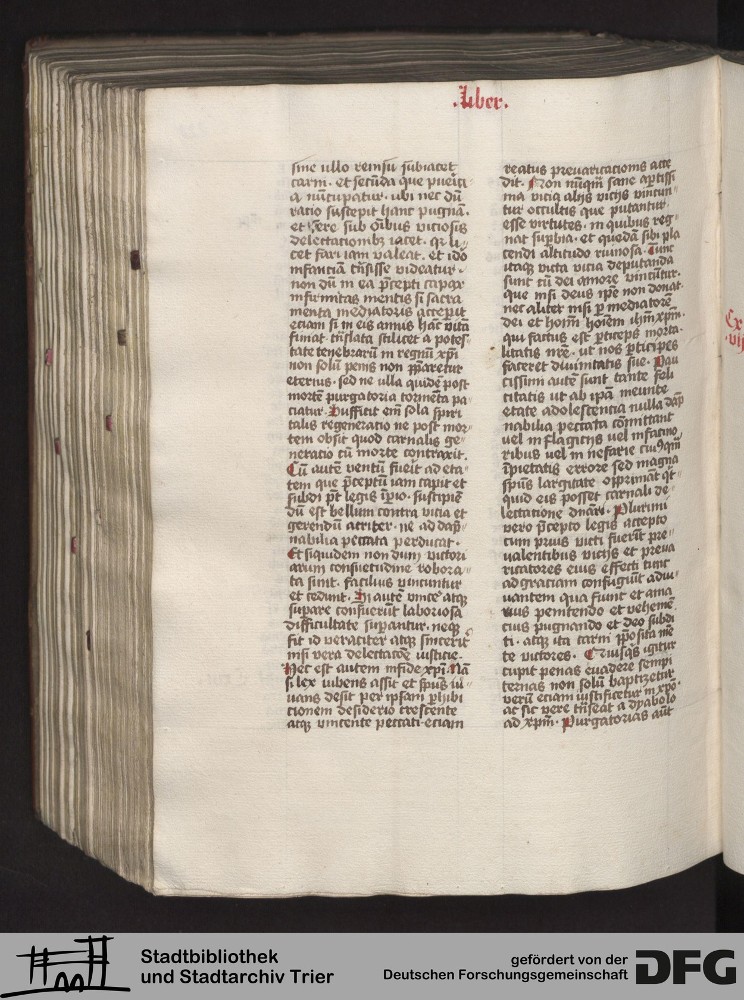 .Liber.
sine ullo renisu subiacet
carni. et secūda que pueri
a nūcupatur. ubi nec dū
ratio suscepit hanc pugnā.
et fere sub oībus viciosis
delectationibꝫ iacet. qꝛ li
cet fari iam valeat. et ido
infantiā trāsisse videatur.
non dū in ea p̄cepti capax
infirmitas mentis si sacra
menta mediatoris acceperit
eciam si in eis annis hāc vitā
finiat trāslata scilicet a potes
tate tenebrarū in regnū xpī
non solū penis non p̄paretur
eternis. sed ne ulla quidē post
mortē purgatoria tormēta pa
ciatur. Sufficit em̄ sola spiri
talis regeneratio ne post mor
tem obsit quod carnalis ge
neratio cū morte contraxit.
Cū autē ventū fuerit ad eta
tem que p̄ceptū iam capit et
subdi pt̄ legis īperio. suscipiē
dū est bellum contra vicia et
gerendū acriter. ne ad dāp
nabilia peccata perducat.
Et siquidem non dum victori
arum consuetudine robora
ta sunt. facilius vincuntur
et cedunt. Si autē vincē atqꝫ
impare consueuerūt laboriosa
difficultate suparantur. neqꝫ
fit id veraciter atqꝫ sincerit
nisi vera delectacōe iusticie.
Hec est autem in fide xpī. Nā
si lex iubens assit et spūs iu
uans desit per ipsam ꝓhibi
cionem desiderio crescente
atqꝫ vincente peccati. eciam
reatus prevaricacionis acce
dit. Non nūqm̄ sane aptissi
ma vicia alijs vicijs vincun
tur occultis que putantur
esse virtutes. in quibus reg
nat supbia. et quedā sibi pla
cendi altitudo ruinosa. Tunc
itaqꝫ victa vicia deputanda
sunt cū dei amore vincūtur.
que nisi deus ipē non donat
nec aliter nisi p mediatorē
dei et hoīm hoīem ihm̄ xpm̄.
qui factus est pticeps morta
litatis nrē. ut nos pticipes
faceret diuinitatis sue. Pau
cissimi autē sunt tante feli
citatis ut ab ipā ineunte
etate adolescentia nulla dāp
nabilia peccata cōmittant
vel in flagicijs vel in facino
ribus vel in nefarie cuiꝰqm̄
īpietatis errore sed magna
spūs largitate opprimāt qc̄
quid eis posset carnali de
lectatione dnāri. Plurimi
vero p̄cepto legis accepto
cum prius victi fuerīt pre
ualentibus vicijs et preua
ricatores eius effecti tunc
ad graciam confugiūt adiu
uantem qua fiunt et ama
rius penitendo et vehemē
cius pugnando et deo subdi
ti. atqꝫ ita carni p̄posita mē
te victores. Quisqs igitur
cupit penas euadere sempi
ternas non solū baptizetur
verū eciam iustificetur in xpō.
ac sic vere trāseat a dyabolo
ad xpm̄. Purgatorias aūt
Stadtbibliothek
und Stadtarchiv Trier
gefördert von der
Deutschen Forschungsgemeinschaft
DFG